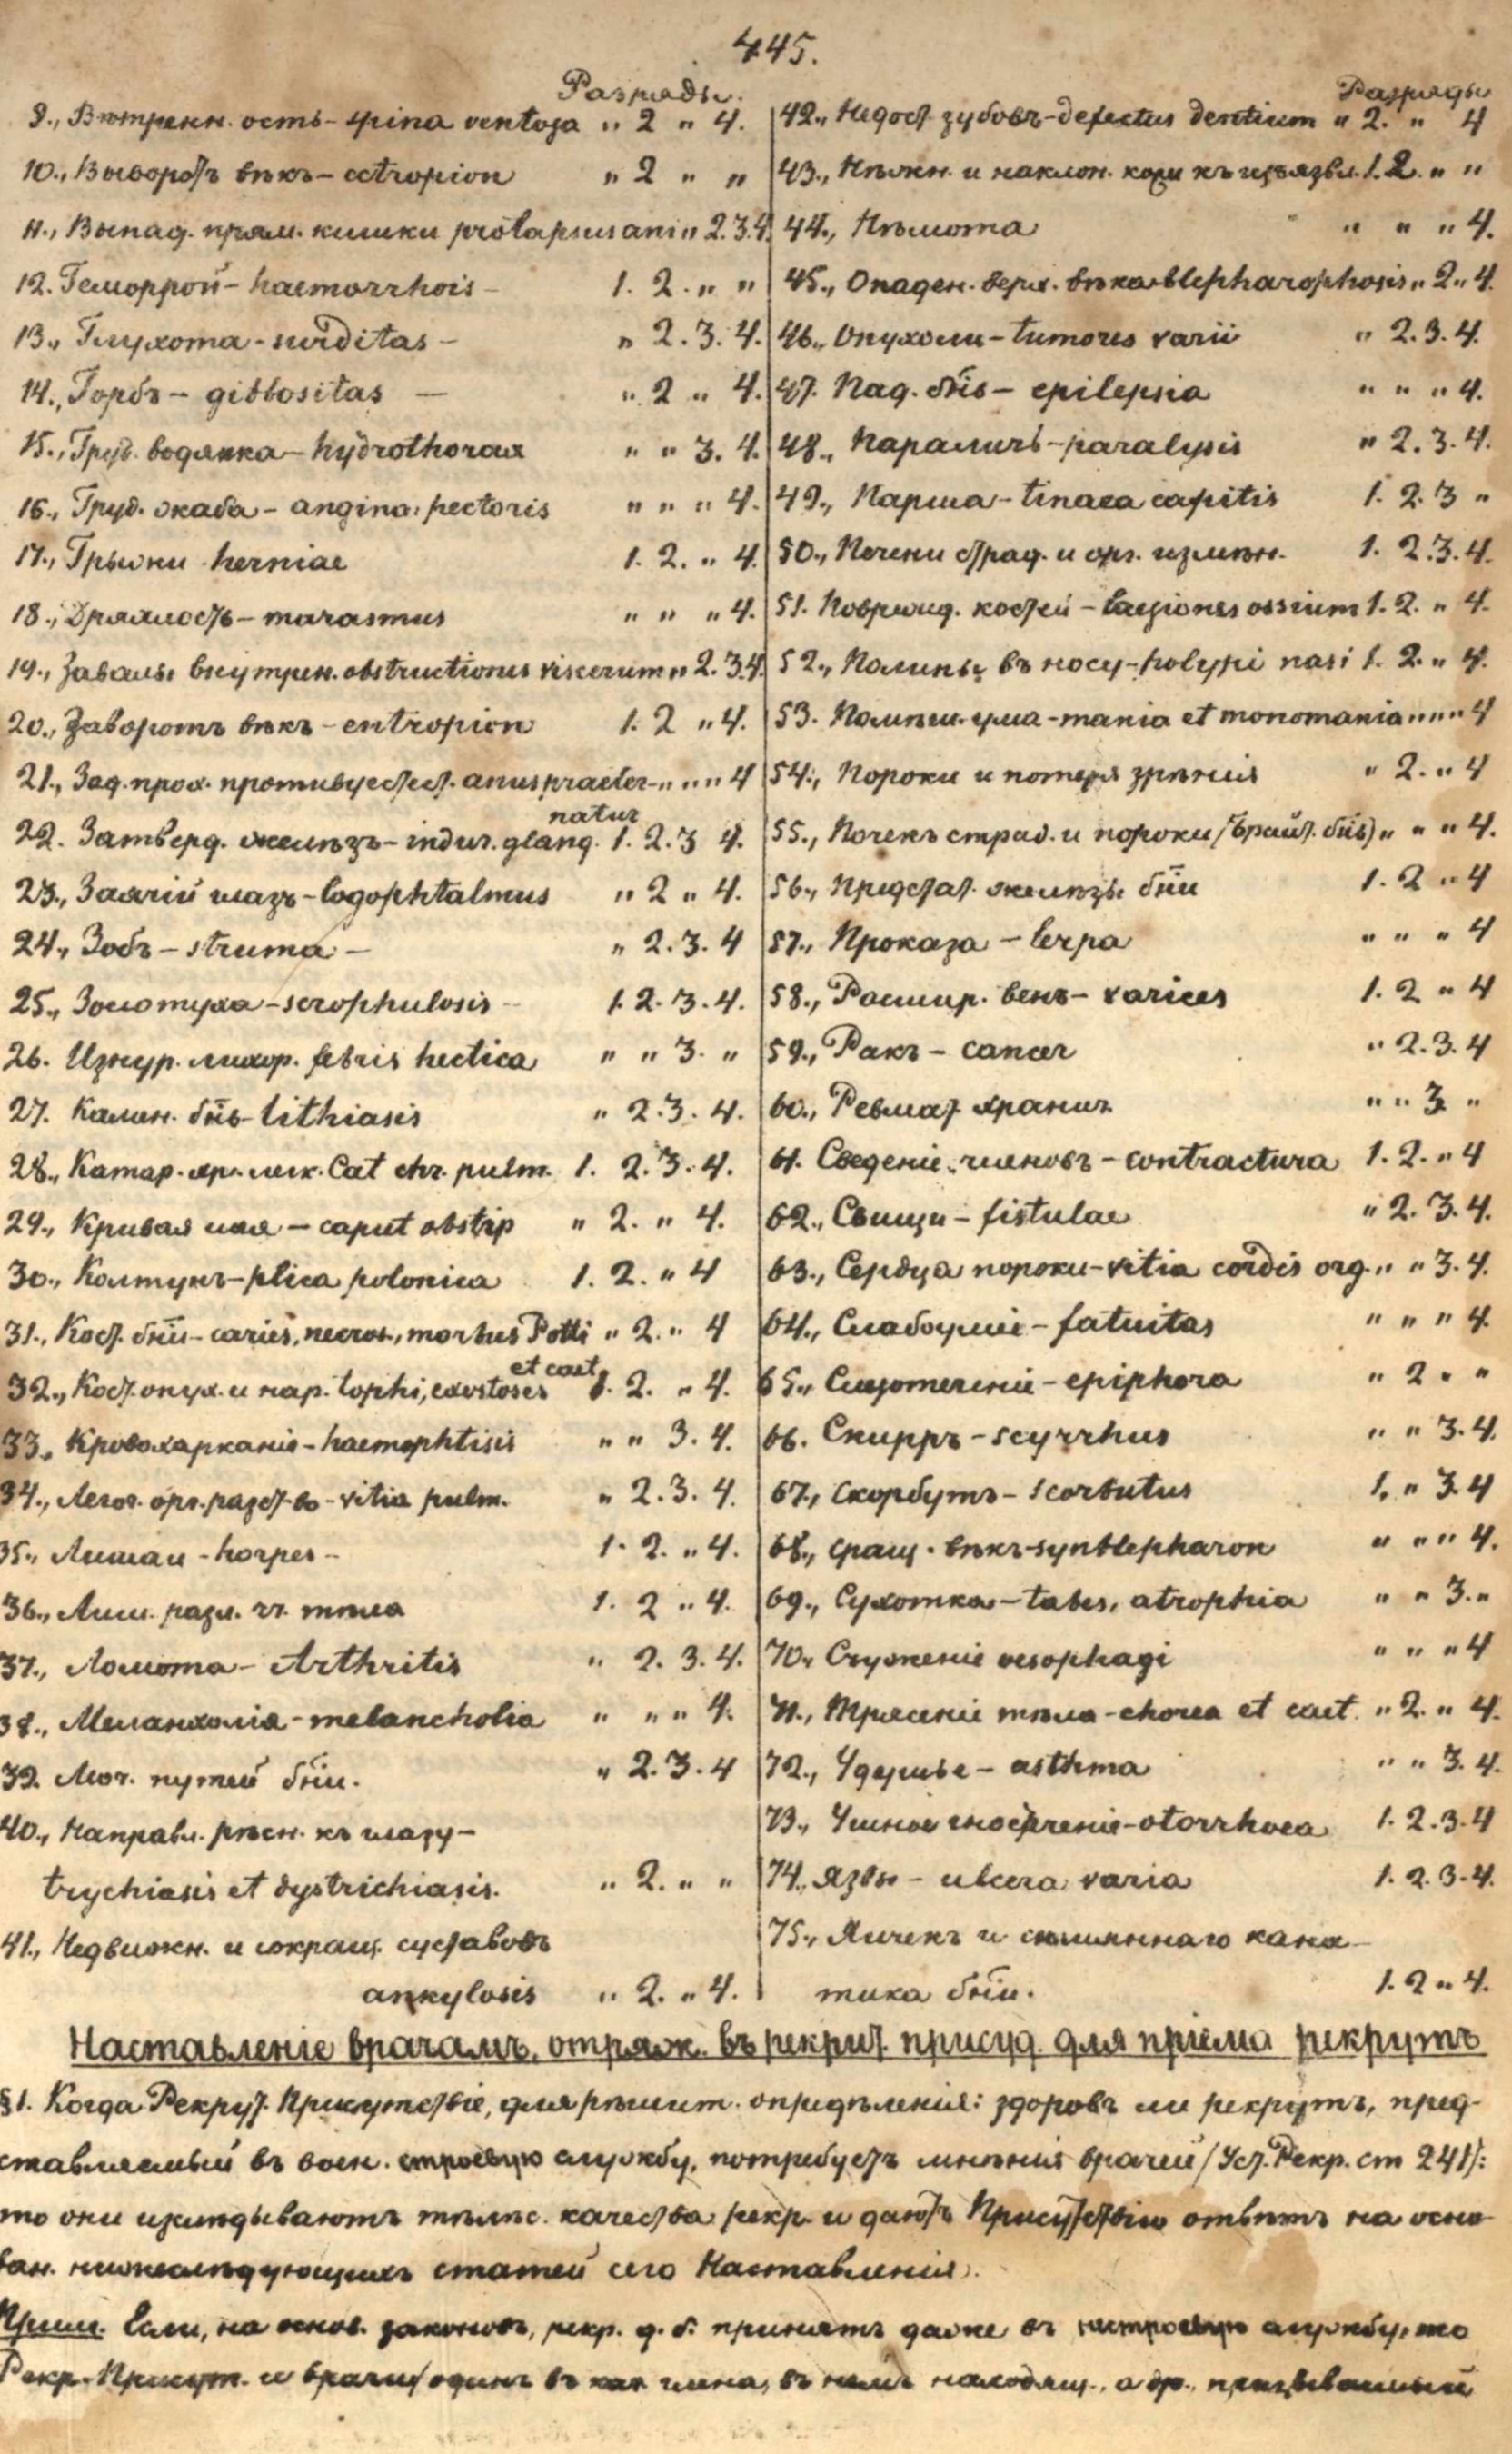 445.
Разряды.
9., Вѣтренн. ость - spina ventosa " 2 " 4.
10., Выворотъ вѣкъ - ectropion " 2 " "
11., Выпад. прям. кишки prolapsus ani " 2.3.4.
12. Геморрой - haemorrhois - 1. 2. " "
13., Глухота - surditas - " 2. 3. 4.
14., Горбъ - gibbositas - " 2 " 4.
15., Груд. водянка - hydrothorax " " 3. 4.
16., Груд. жаба - angina pectoris " " " 4.
17., Грыжи - herniae 1. 2. " 4.
18., Дряхлость - marasmus " " " 4.
19., Завалы внутрен. obstructiones viscerum " 2. 3.4.
20., Заворотъ вѣкъ - entropion 1. 2 " 4.
21., Зад. прох. противуестест. anus praeter- " " " 4
natur
22. Затверд. желѣзъ - indur. gland. 1. 2. 3 4.
23., Заячій глазъ - lagophtalmus " 2 " 4.
24., Зобъ - struma - " 2. 3. 4
25., Золотуха - scrophulosis - 1. 2. 3. 4.
26. Изнур. лихор. febris hectica " " 3. "
27. Камен. бнь - lithiasis " 2. 3. 4.
28., Катар. хр. легк. Cat chr. pulm. 1. 2. 3. 4.
29., Кривая шея - caput obstip " 2. " 4.
30., Колтунъ - plica polonica 1. 2. " 4
31., Кост. бнѣи - caries, necros., morbus Potti " 2. " 4
et caet
32., Кост. опух. и нар. tophi, exostoses 1. 2. " 4.
33., Кровохарканіе - haemophtisis " " 3. 4.
34., Легоч. орг. разст-во - vitia pulm. " 2. 3. 4.
35., Лишаи - herpes - 1. 2. " 4.
36., Лиш. разл. чч. тѣла 1. 2 " 4.
37., Ломота - Arthritis " 2. 3. 4.
38., Меланхолія - melancholia " " " 4.
39. Моч. путей бнѣи. " 2. 3. 4
40., Направл. рѣсн. къ глазу -
trychiasis et dystrichiasis. " 2. " "
41., Недвижн. и сокращ. суставовъ
ankylosis " 2. " 4.
Разряды
42., Недост. зубовъ - defectus dentium " 2. " 4
43., Нѣжн. и наклон. кожи къ изъязвл. 1. 2. " "
44., Нѣмота " " " 4.
45., Опаден. верх. вѣка - blepharophosis " 2 " 4.
46., Опухоли - tumores varii " 2. 3. 4.
47. Пад. бнь - epilepsia " " " 4.
48., Параличъ - paralysis " 2. 3. 4.
49., Парша - tinaea capitis 1. 2. 3 "
50., Печени страд. и орг. измѣн. 1. 2. 3. 4.
51. Поврежд. костей - laesiones ossium 1. 2. " 4.
52., Полипы въ носу - polypi nasi 1. 2. " 4.
53. Помѣш. ума - mania et monomania " " " 4
54., Пороки и потеря зрѣнія " 2. " 4
55., Почекъ страд. и пороки (Брайт. бнь) " " " 4.
56., Предстат. желѣзы бнѣи 1. 2 " 4
57., Проказа - lepra " " " 4
58., Расшир. венъ - varices 1. 2 " 4
59., Ракъ - cancer " 2. 3. 4
60., Ревмат. хранич. " " 3 "
61. Сведеніе членовъ - contractura 1. 2. " 4
62., Свищи - fistulae " 2. 3. 4.
63., Сердца пороки - vitia cordis org. " " 3. 4.
64., Слабоуміе - fatuitas " " " 4.
65., Слезотеченіе - epiphora " 2 " "
66. Скирръ - scyrrhus " " 3. 4.
67., Скорбутъ - scorbutus 1. " 3. 4
68., Сращ. вѣкъ - synblepharon " " " 4.
69., Сухотка - tabes, atrophia " " 3. "
70. Съуженіе oesophagi " " " 4
71., Трясеніе тѣла - chorea et caet. " 2. " 4.
72., Удушье - asthma " " 3. 4.
73., Ушное гноетеченіе - otorrhoea 1. 2. 3. 4
74., Язвы - ulcera varia 1. 2. 3. 4.
75., Яичекъ и сѣмяннаго кана-
тика бнѣи. 1. 2 " 4.
Наставленіе врачамъ, отряж. въ рекрут. присуд. для пріема рекрутъ
§1. Когда Рекрут. Присутствіе, для рѣшит. опредѣленія: здоровъ ли рекрутъ, пред-
ставляемый въ воен. строевую службу, потребуетъ мнѣнія врачей (Уст. Рекр. ст 241):
то они изслѣдываютъ тѣлес. качества рекр. и даютъ Присутствію отвѣтъ на осно-
ван. нижеслѣдующихъ статей сего Наставленія.
Прим. Если, на основ. законовъ, рекр. д. б. принятъ даже въ нестроевую службу, то
Рекр. Присут. и врачи (одинъ въ кач. члена, въ немъ находящ., а др., призываемый